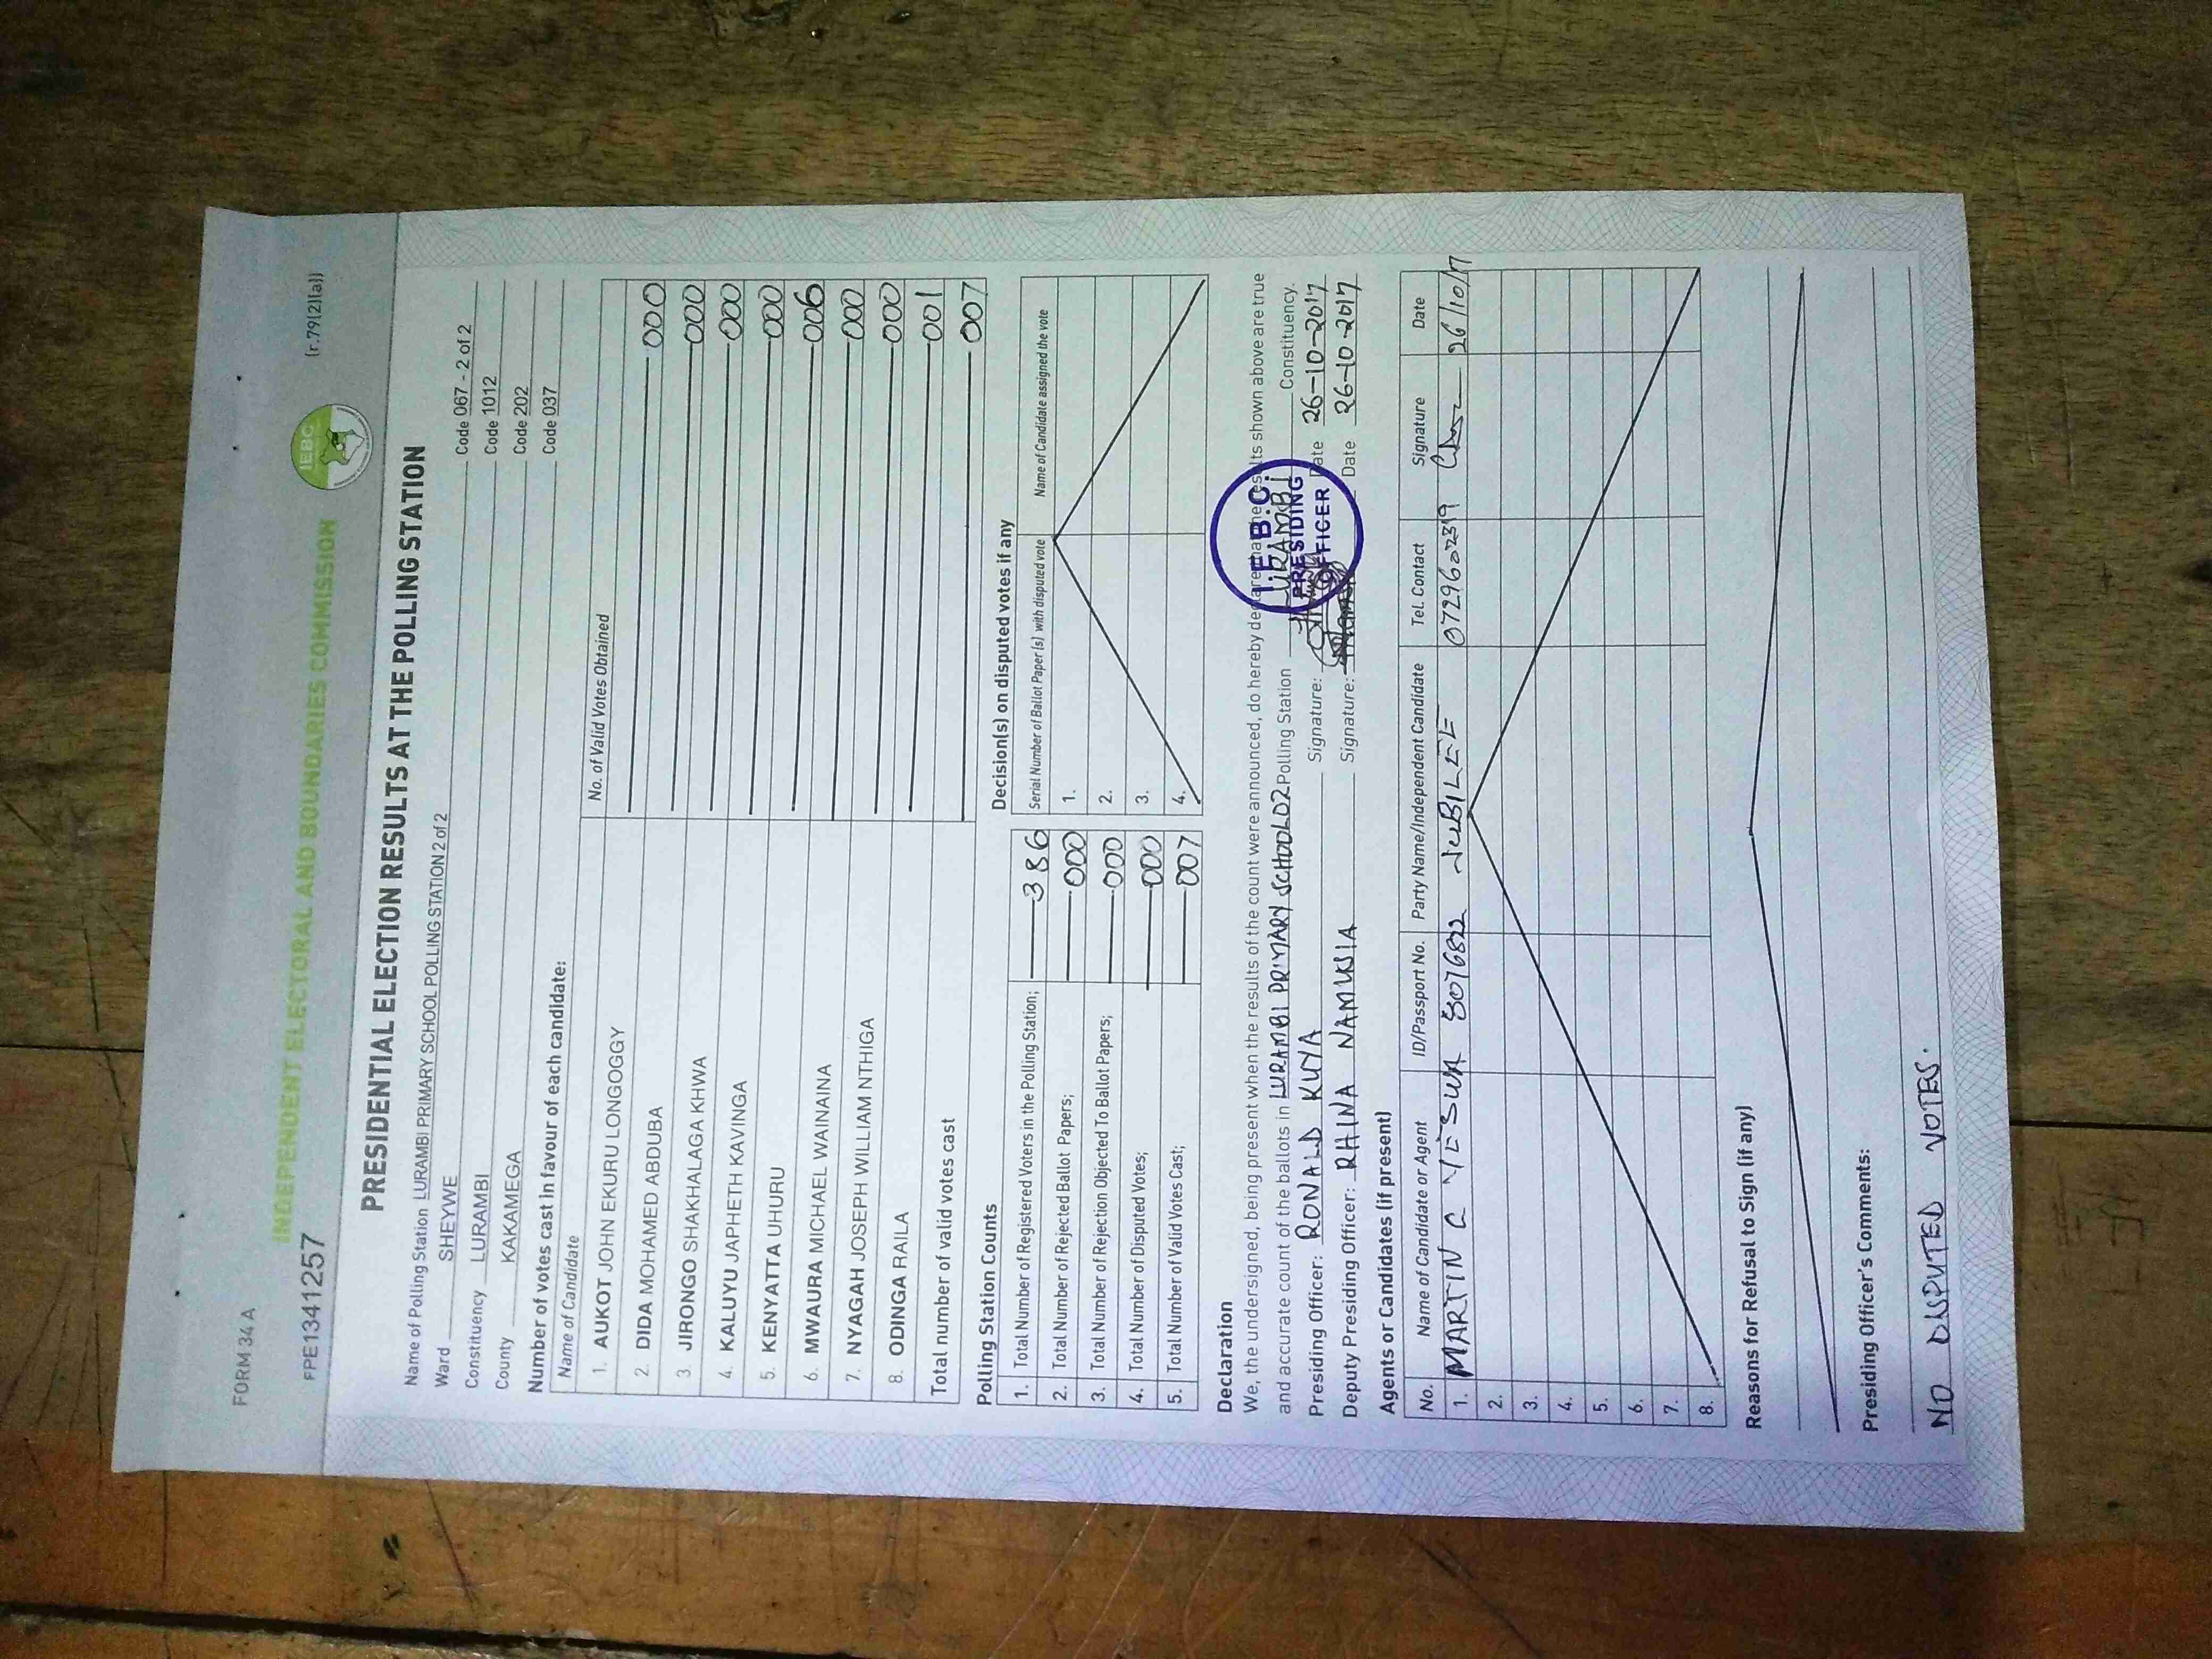 FORM 34 A
INDEPENDENT ELECTORAL AND BOUNDARIES COMMISSION
IEBC
FPE1341257 (r.79(2)(a))
PRESIDENTIAL ELECTION RESULTS AT THE POLLING STATION
Name of Polling Station LURAMBI PRIMARY SCHOOL POLLING STATION 2 of 2 Code 067 - 2 of 2
Ward SHEYWE Code 1012
Constituency LURAMBI Code 202
County KAKAMEGA Code 037
Number of votes cast in favour of each candidate:
Name of Candidate No. of Valid Votes Obtained
1. AUKOT JOHN EKURU LONGOGGY 000
2. DIDA MOHAMED ABDUBA 000
3 JIRONGO SHAKHALAGA KHWA 000
4. KALUYU JAPHETH KAVINGA 000
5. KENYATTA UHURU 006
6. MWAURA MICHAEL WAINAINA 000
7. NYAGAH JOSEPH WILLIAM NTHIGA 000
8. ODINGA RAILA 001
Total number of valid votes cast 007
Polling Station Counts
1. Total Number of Registered Voters in the Polling Station; 386
2. Total Number of Rejected Ballot Papers; 000
3. Total Number of Rejection Objected To Ballot Papers; 000
4. Total Number of Disputed Votes; 000
5. Total Number of Valid Votes Cast; 007
Decision(s) on disputed votes if any
Serial Number of Ballot Paper (s) with disputed vote Name of Candidate assigned the vote
1.
2.
3.
4.
Declaration
We, the undersigned, being present when the results of the count were announced, do hereby declare that the results shown above are true
and accurate count of the ballots in LURAMBI PRIMARY SCHOOL 02 Polling Station LURAMBI Constituency.
Presiding Officer: RONALD KUYA Signature: Date 26-10-2017
Deputy Presiding Officer: RHINA NAMUSIA Signature: Date 26-10-2017
I.E.B.C.
PRESIDING
OFFICER
Agents or Candidates (if present)
No. Name of Candidate or Agent ID/Passport No. Party Name/Independent Candidate Tel. Contact Signature Date
1. MARTIN C YESWA 8076822 JUBILEE 0729602319 26/10/17
2.
3.
4.
5.
6.
7.
8.
Reasons for Refusal to Sign (if any)
Presiding Officer's Comments:
NO DISPUTED VOTES.